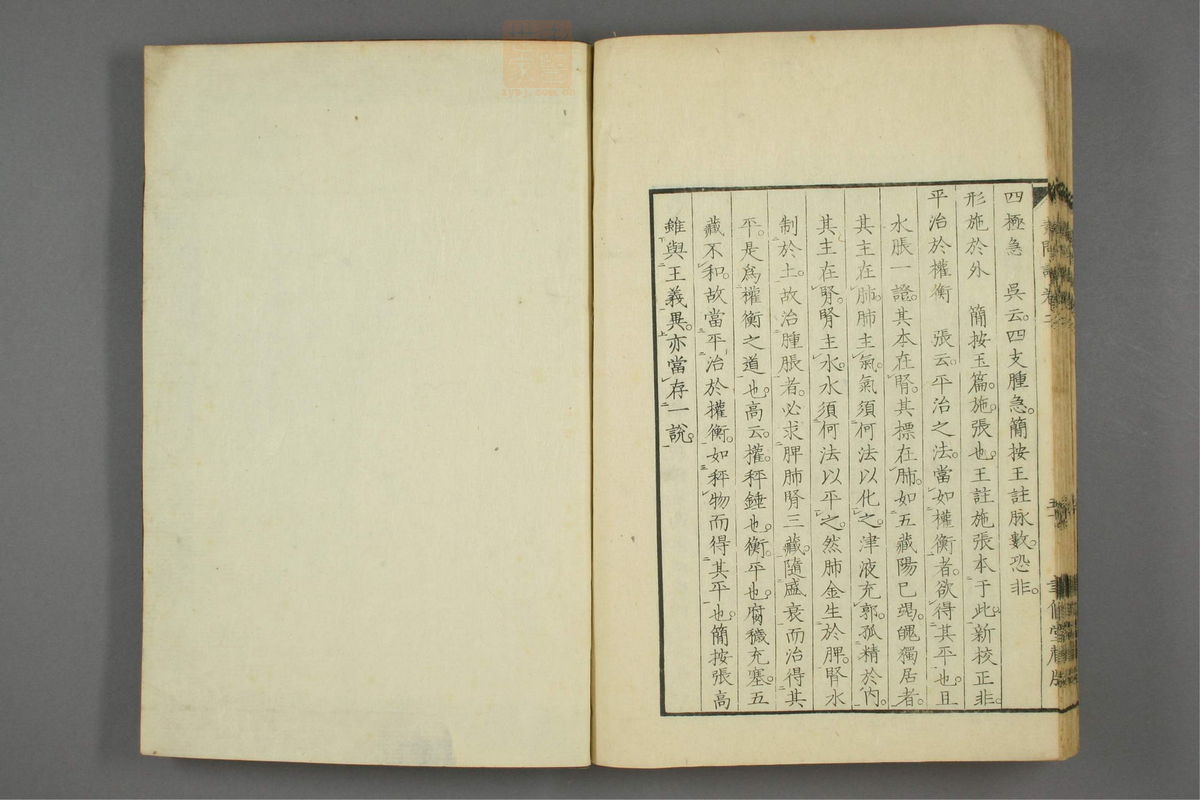 四極急　吳云。四支腫急。簡按王註脉數。恐非。
形施於外　簡按玉篇。施。張也。王註施張本于此。新校正非。
平治於權衡　張云。平治之法。當如權衡者。欲得其平也。且
水脹一證。其本在腎。其標在肺。如五藏陽已竭。魄獨居者。
其主在肺。肺主氣。氣須何法以化之。津液充郭。孤精於內。
其主在腎。腎主水。水須何法以平之。然肺金生於脾。腎水
制於土。故治腫脹者。必求脾肺腎三藏。隨盛衰而治得其
平。是爲權衡之道也。高云。權。秤錘也。衡。平也。腐穢充塞。五
藏不和。故當平治於權衡。如秤物而得其平也。簡按張高
雖與王義異。亦當存一說。